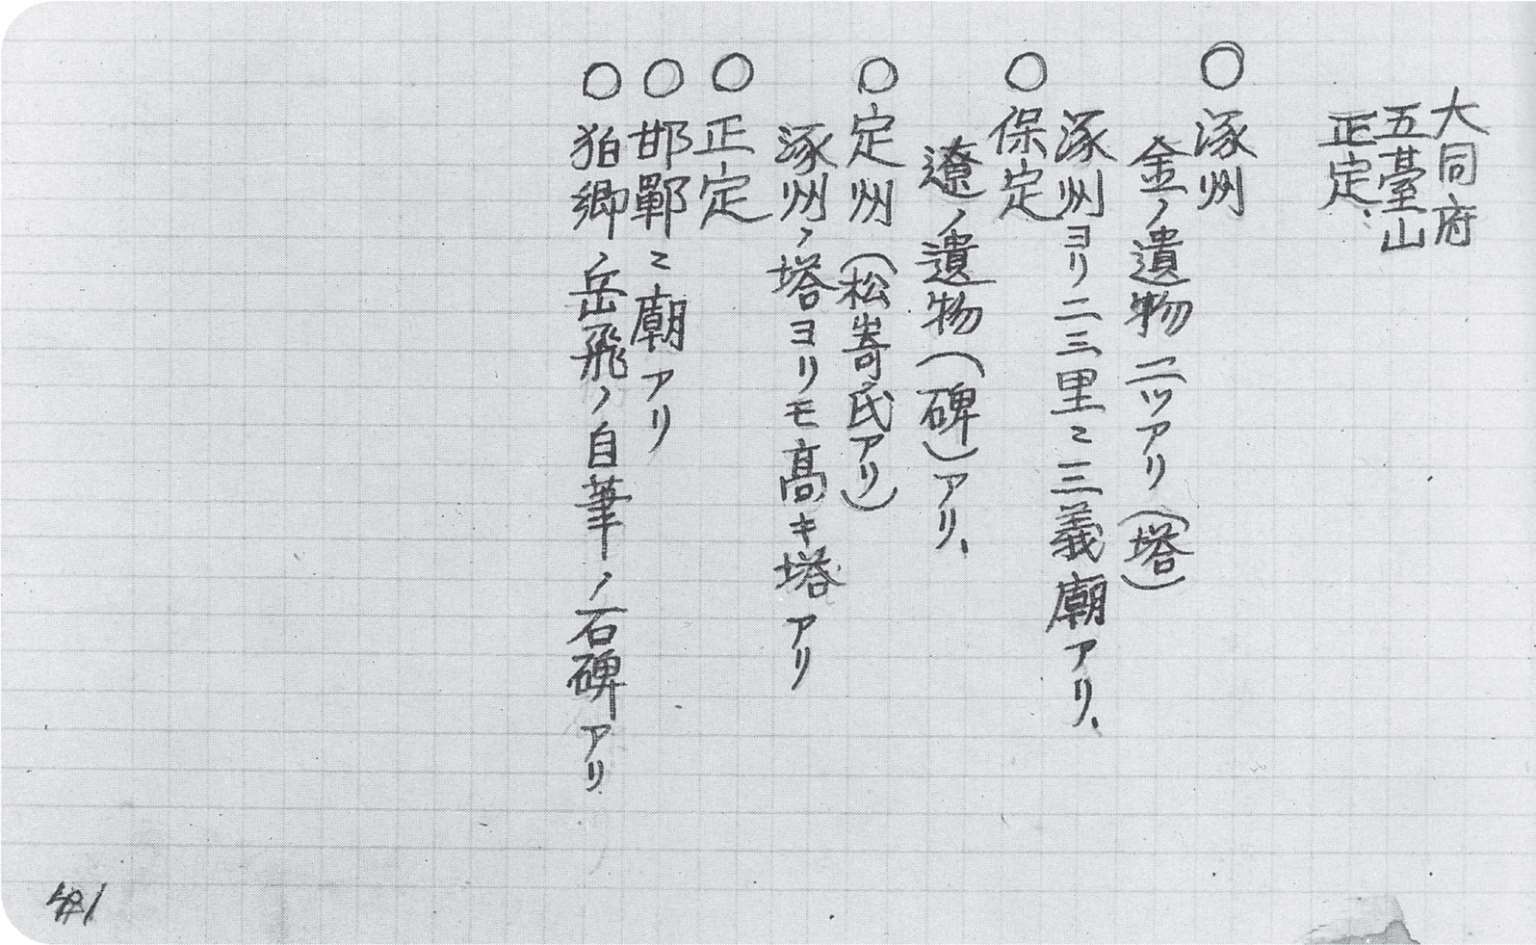 大同府
五臺山
正定、
○涿州
金ノ遺物二ツアリ(塔)
涿州ヨリ二三里ニ三義廟アリ、
○保定
遼ノ遺物(碑)アリ、
○定州(松嵜氏アリ)
涿州ノ塔ヨリモ高キ塔アリ
○正定
○邯鄲ニ廟アリ
○狛郷ノ岳飛ノ自筆ノ石碑アリ